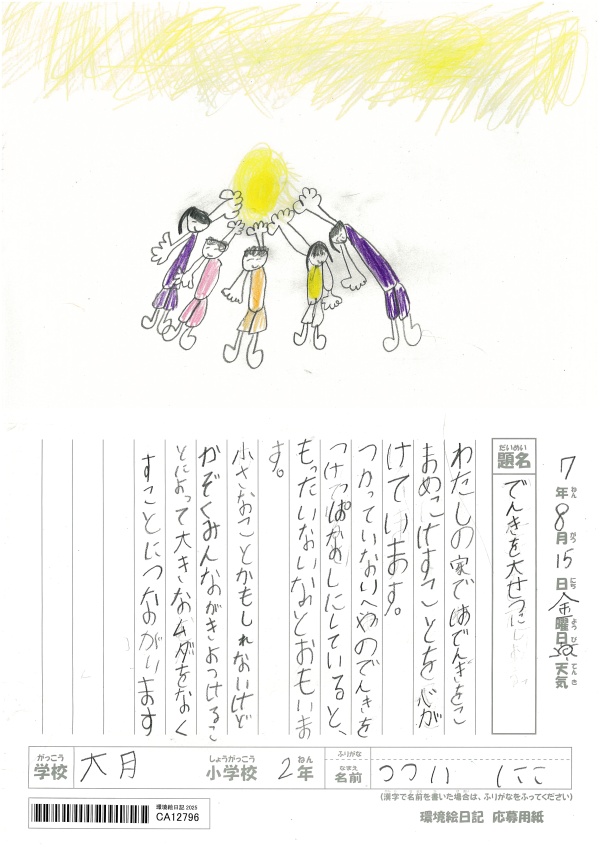 7年8月15日金曜日 天気
ねん がつ にち ようび てんき
だいめい
題名 でんきを大せつにし
わたしの家ではでんきをこ
まめにけすことを心が
けています。
つかっていないへやのでんきを
つけっぱなしにしていると、
もったいないなとおもいま
す。
小さなことかもしれないけど
かぞくみんながきをつけるこ
とによって大きなムダをなく
すことにつながります
がっこう しょうがっこう ねん ふりがな
学校 大月 小学校 2年 なまえ 名前 つつい にこ
(漢字で名前を書いた場合は、ふりがなをふってください)
環境絵日記2025
CA12796
環境絵日記 応募用紙